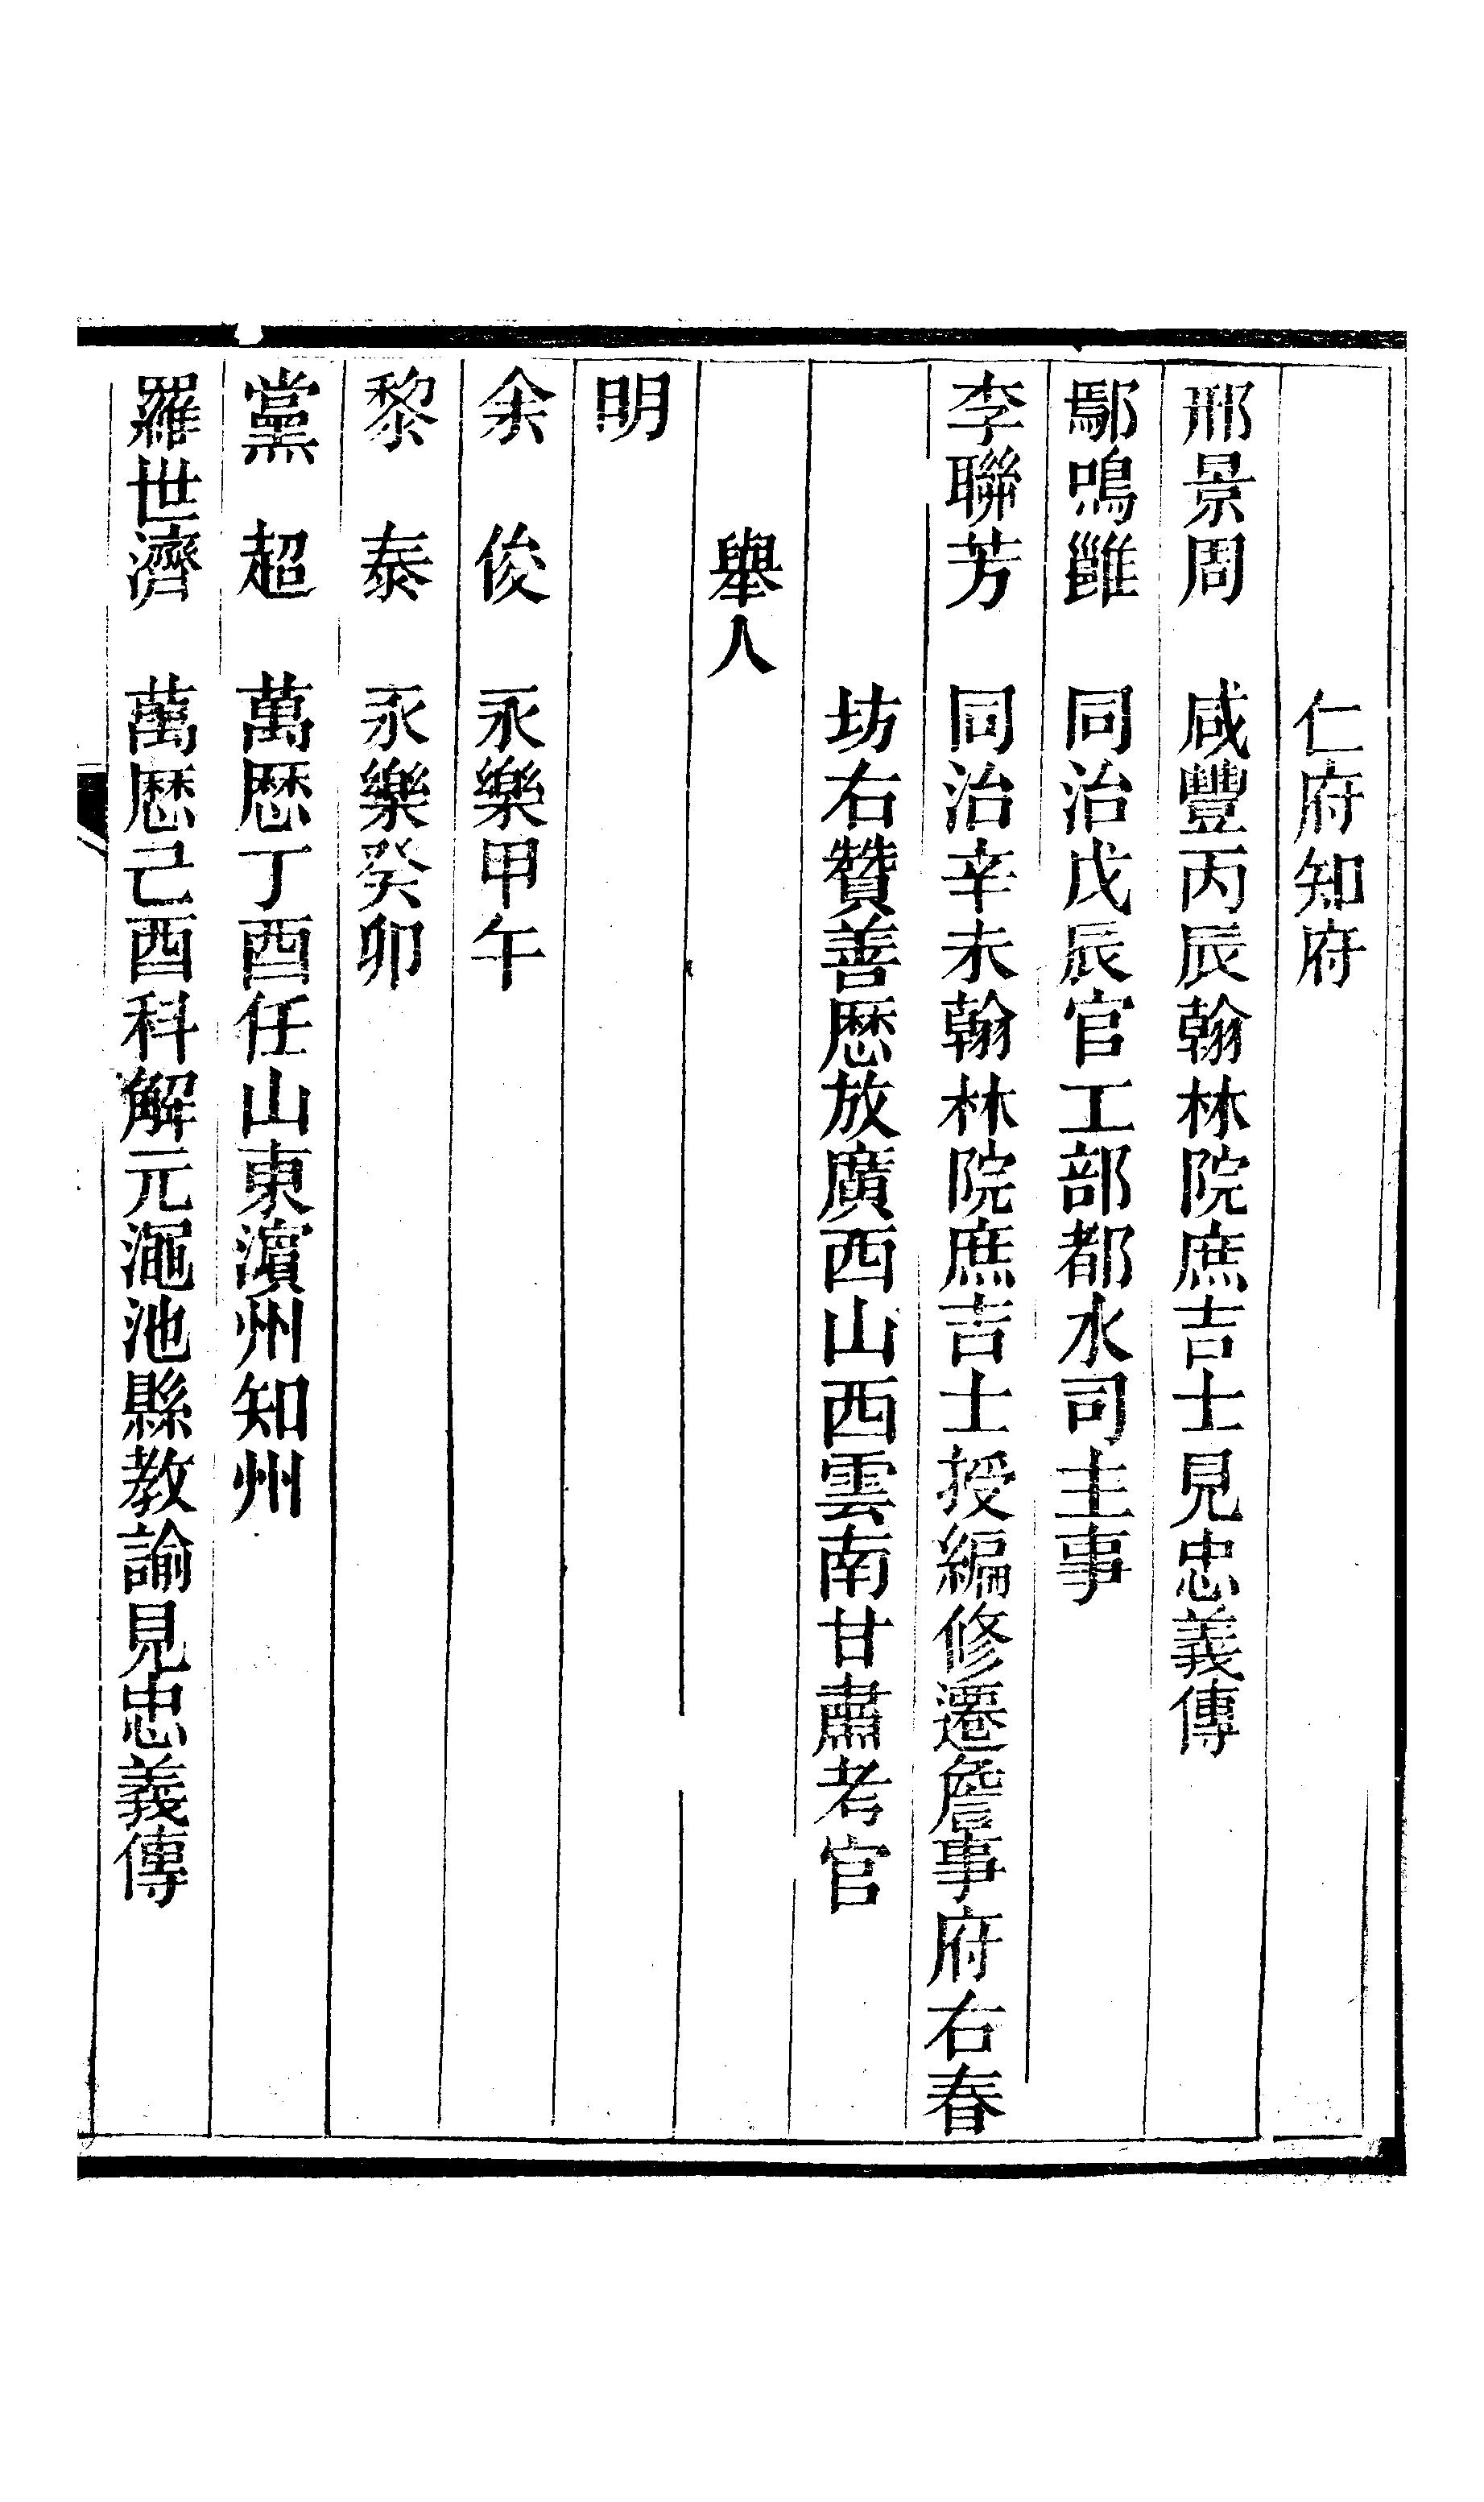 仁府知府
邢景周　咸豐丙辰翰林院庶吉士見忠義傳
鄢鳴雝　同治戊辰官工部都水司主事
李聯芳　同治辛未翰林院庶吉士授編修遷詹事府右春
坊右贊善歷放廣西山西雲南甘肅考官
舉人
明
余　俊　永樂甲午
黎　泰　永樂癸卯
黨　超　萬歷丁酉任山東濵州知州
羅世濟　萬歷己酉科解元澠池縣教諭見忠義傳